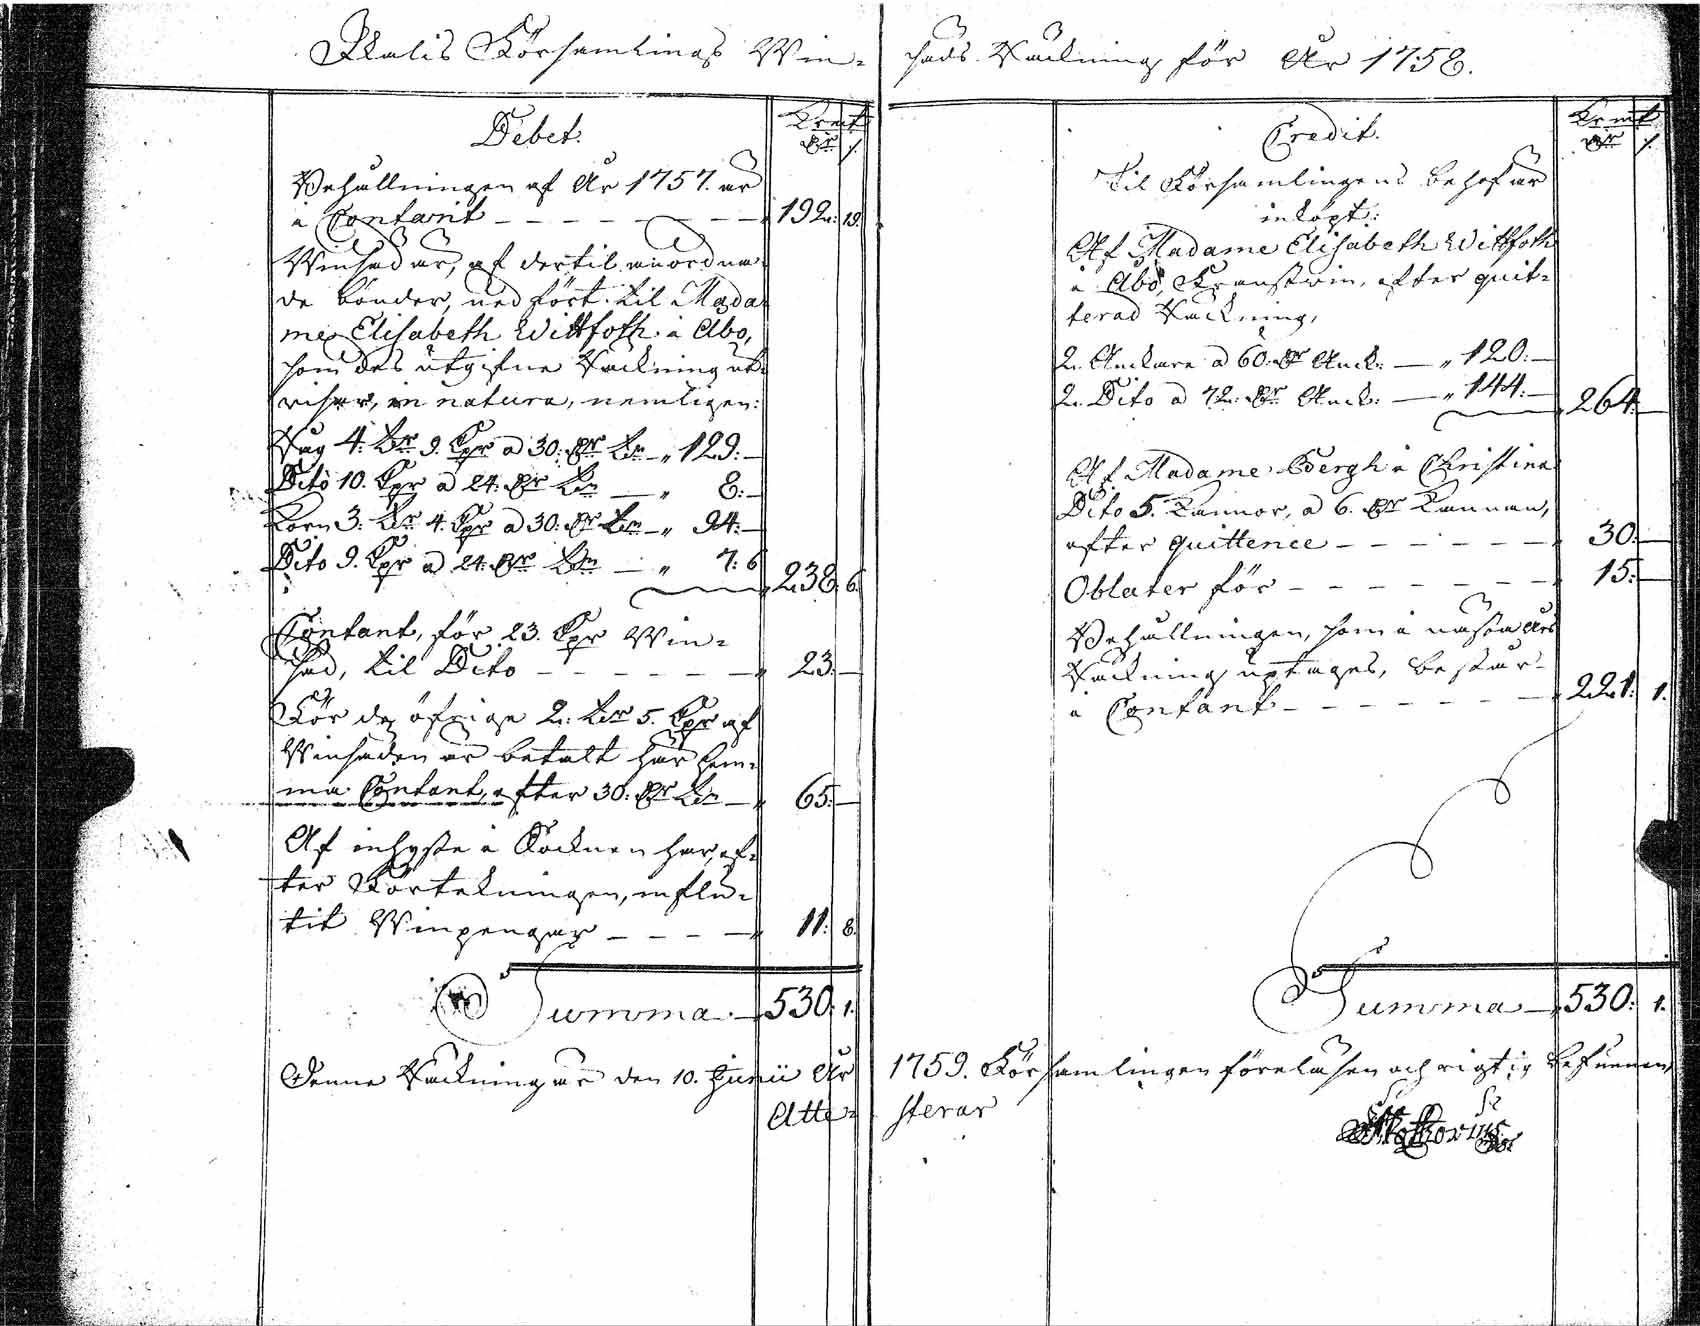 Ikalis Församlings Win-
sads Räckning för År 1758.
Debet.
Krmt
Dr /.
Behållningen af År 1757. är
i Contant — — — — — — 192: 19.
Winsad är, af dertil anordna-
de bönder, ned fört til Mada
me Elisabeth Wittfoth i Åbo,
som des utgifne Räckning ut-
viser, in natura, nemligen:
Råg 4. Tnr 9. Kpr a 30. Dr Tnn — „ 129: —
Dito 10. Kpr a 24. Dr Tnn — „ 8: —
Korn 3: Tnr 4. Kpr a 30: Dr Tnn — „ 94: —
Dito 9. Kpr a 24. Dr Tnn — „ 7: 6
238: 6.
Contant, för 23. Kpr Win-
sad, til Dito — — — — — „ 23: —
För de öfrige 2: Tnr 5. Kpr af
Winsaden är betalt här hem-
ma Contant, efter 30: Dr Tnn — „ 65: —
Af inhyste i Socknen har, ef-
ter Förtekningen, influ-
tit Winpengar — — — — 11: 8.
Summa — 530: 1.
Credit.
Krmt
Dr /.
Til Församlingens behof är
inköpt:
Af Madame Elisabeth Wittfoth
i Åbo, Franstwin, efter quit-
terad Räckning,
2. Anckare a 60. Dr Anck: — „ 120: —
2. Dito a 72: Dr Anck: — „ 144: —
264: —
Af Madame Bergh i Christina
Dito 5. Kannor, a 6. Dr Kannan,
efter quittence — — — — — — 30: —
Oblater för — — — — — — 15: —
Behållningen, som i nästa Års
Räckning uptages, består
i Contant — — — — — — 221: 1.
Summa — 530: 1.
Denne Räckning är den 10. Junii År 1759. Församlingen föreläsen och rigtig befunnen,
Atte- sterar